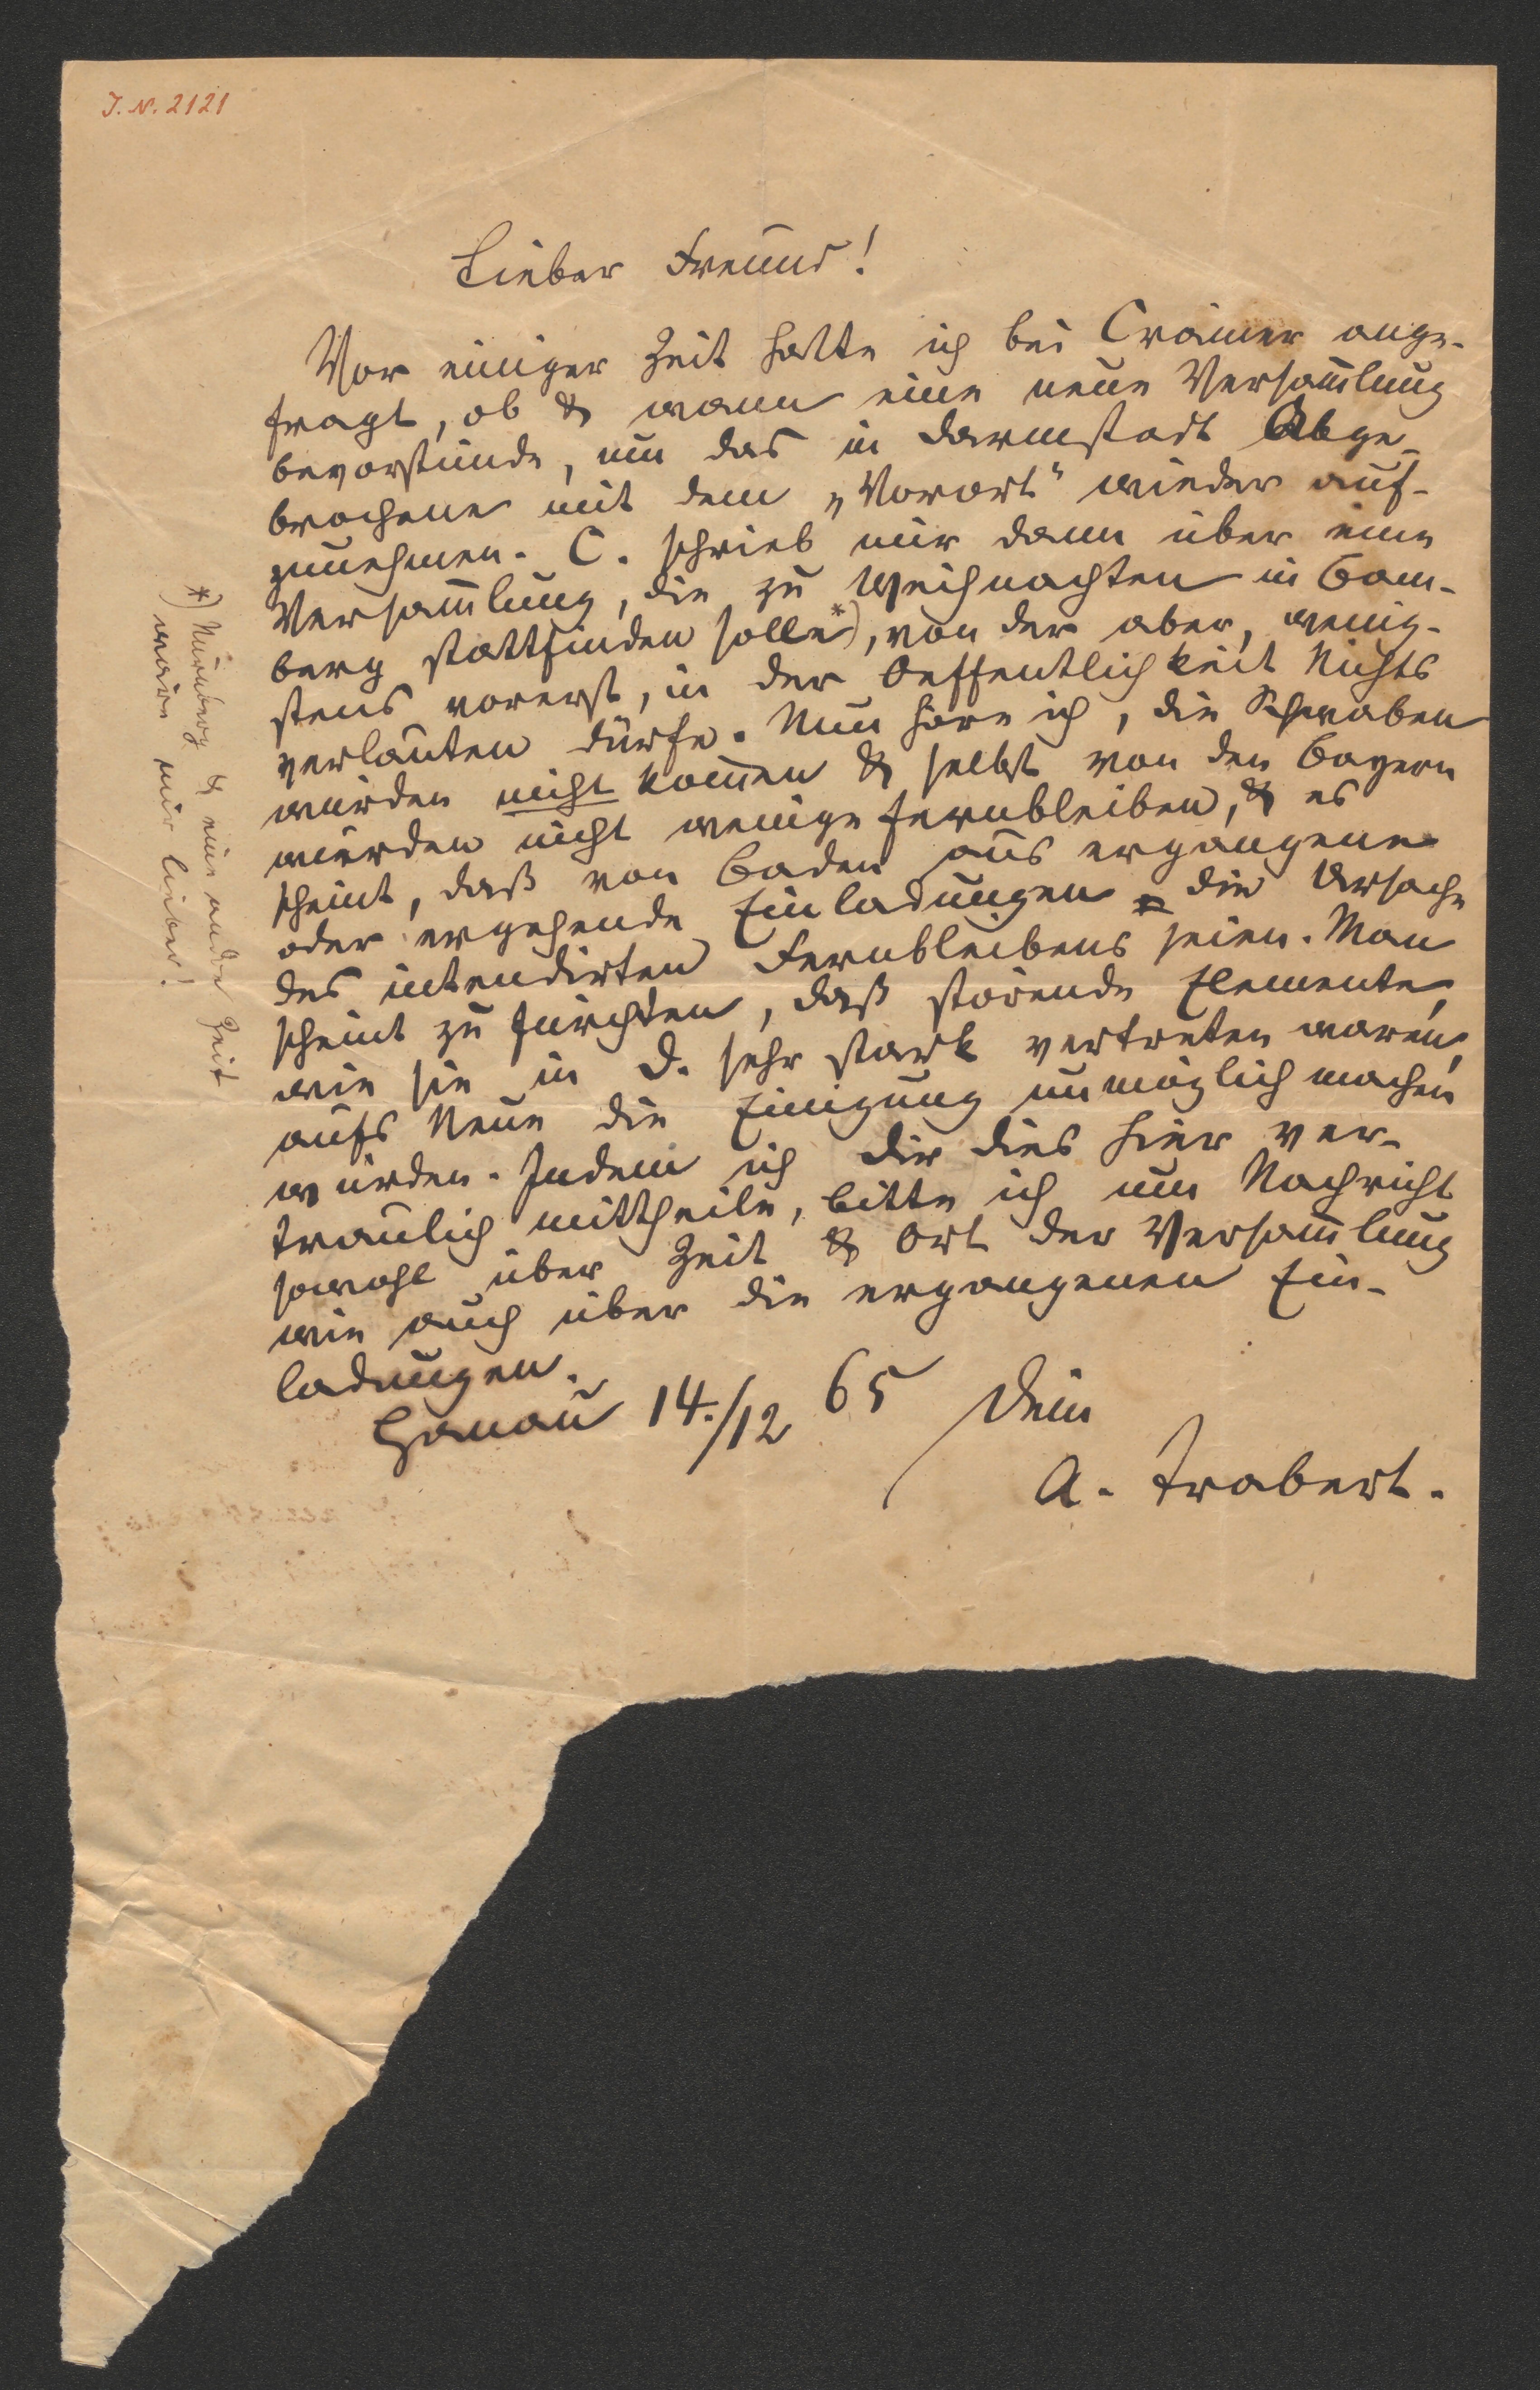 J. N. 2121
Lieber Freund!
Vor einiger Zeit hatte ich bei Crämer ange-
fragt, ob & wann eine neue Versam̄lung
bevorstünde, um das in Darmstadt Abge-
brochene mit dem „Vorort“ wieder auf-
zunehmen. C. schrieb mir dann über eine
Versam̄lung, die zu Weihnachten in Bam-
berg stattfinden solle*), von der aber, wenig-
stens vorerst, in der Oeffentlichkeit Nichts
verlauten dürfe. Nun höre ich, die Schwaben
würden nicht kom̄en & selbst von den Bayern
würden nicht wenige fernbleiben, & es
scheint, daß von Baden aus ergangene
oder ergehende Einladungen die Ursache
des intendirten Fernbleibens seien. Man
scheint zu fürchten, daß störende Elemente,
wie sie in D. sehr stark vertreten waren,
aufs Neue die Einigung unmöglich machen
würden. Indem ich Dir dies hier ver-
traulich mittheile, bitte ich um Nachricht
sowohl über Zeit & Ort der Versam̄lung
wie auch über die ergangenen Ein-
ladungen.
Hanau 14./12 65 Dein
A. Trabert.
*) Nürnberg & eine andre Zeit
wäre mir lieber!